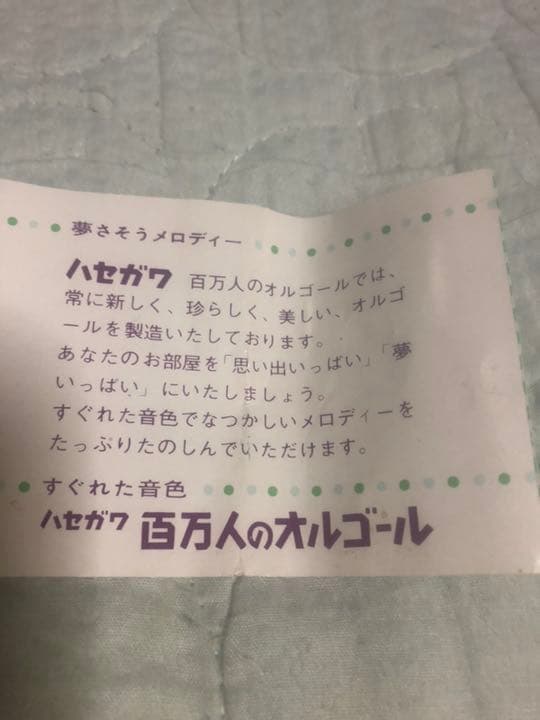 夢さそうメロディー
ハセガワ 百万人のオルゴールでは、
常に新しく、珍らしく、美しい、オルゴ
ールを製造いたしております。
あなたのお部屋を「思い出いっぱい」「夢
いっぱい」にいたしましょう。
すぐれた音色でなつかしいメロディーを
たっぷりたのしんでいただけます。
すぐれた音色
ハセガワ 百万人のオルゴール